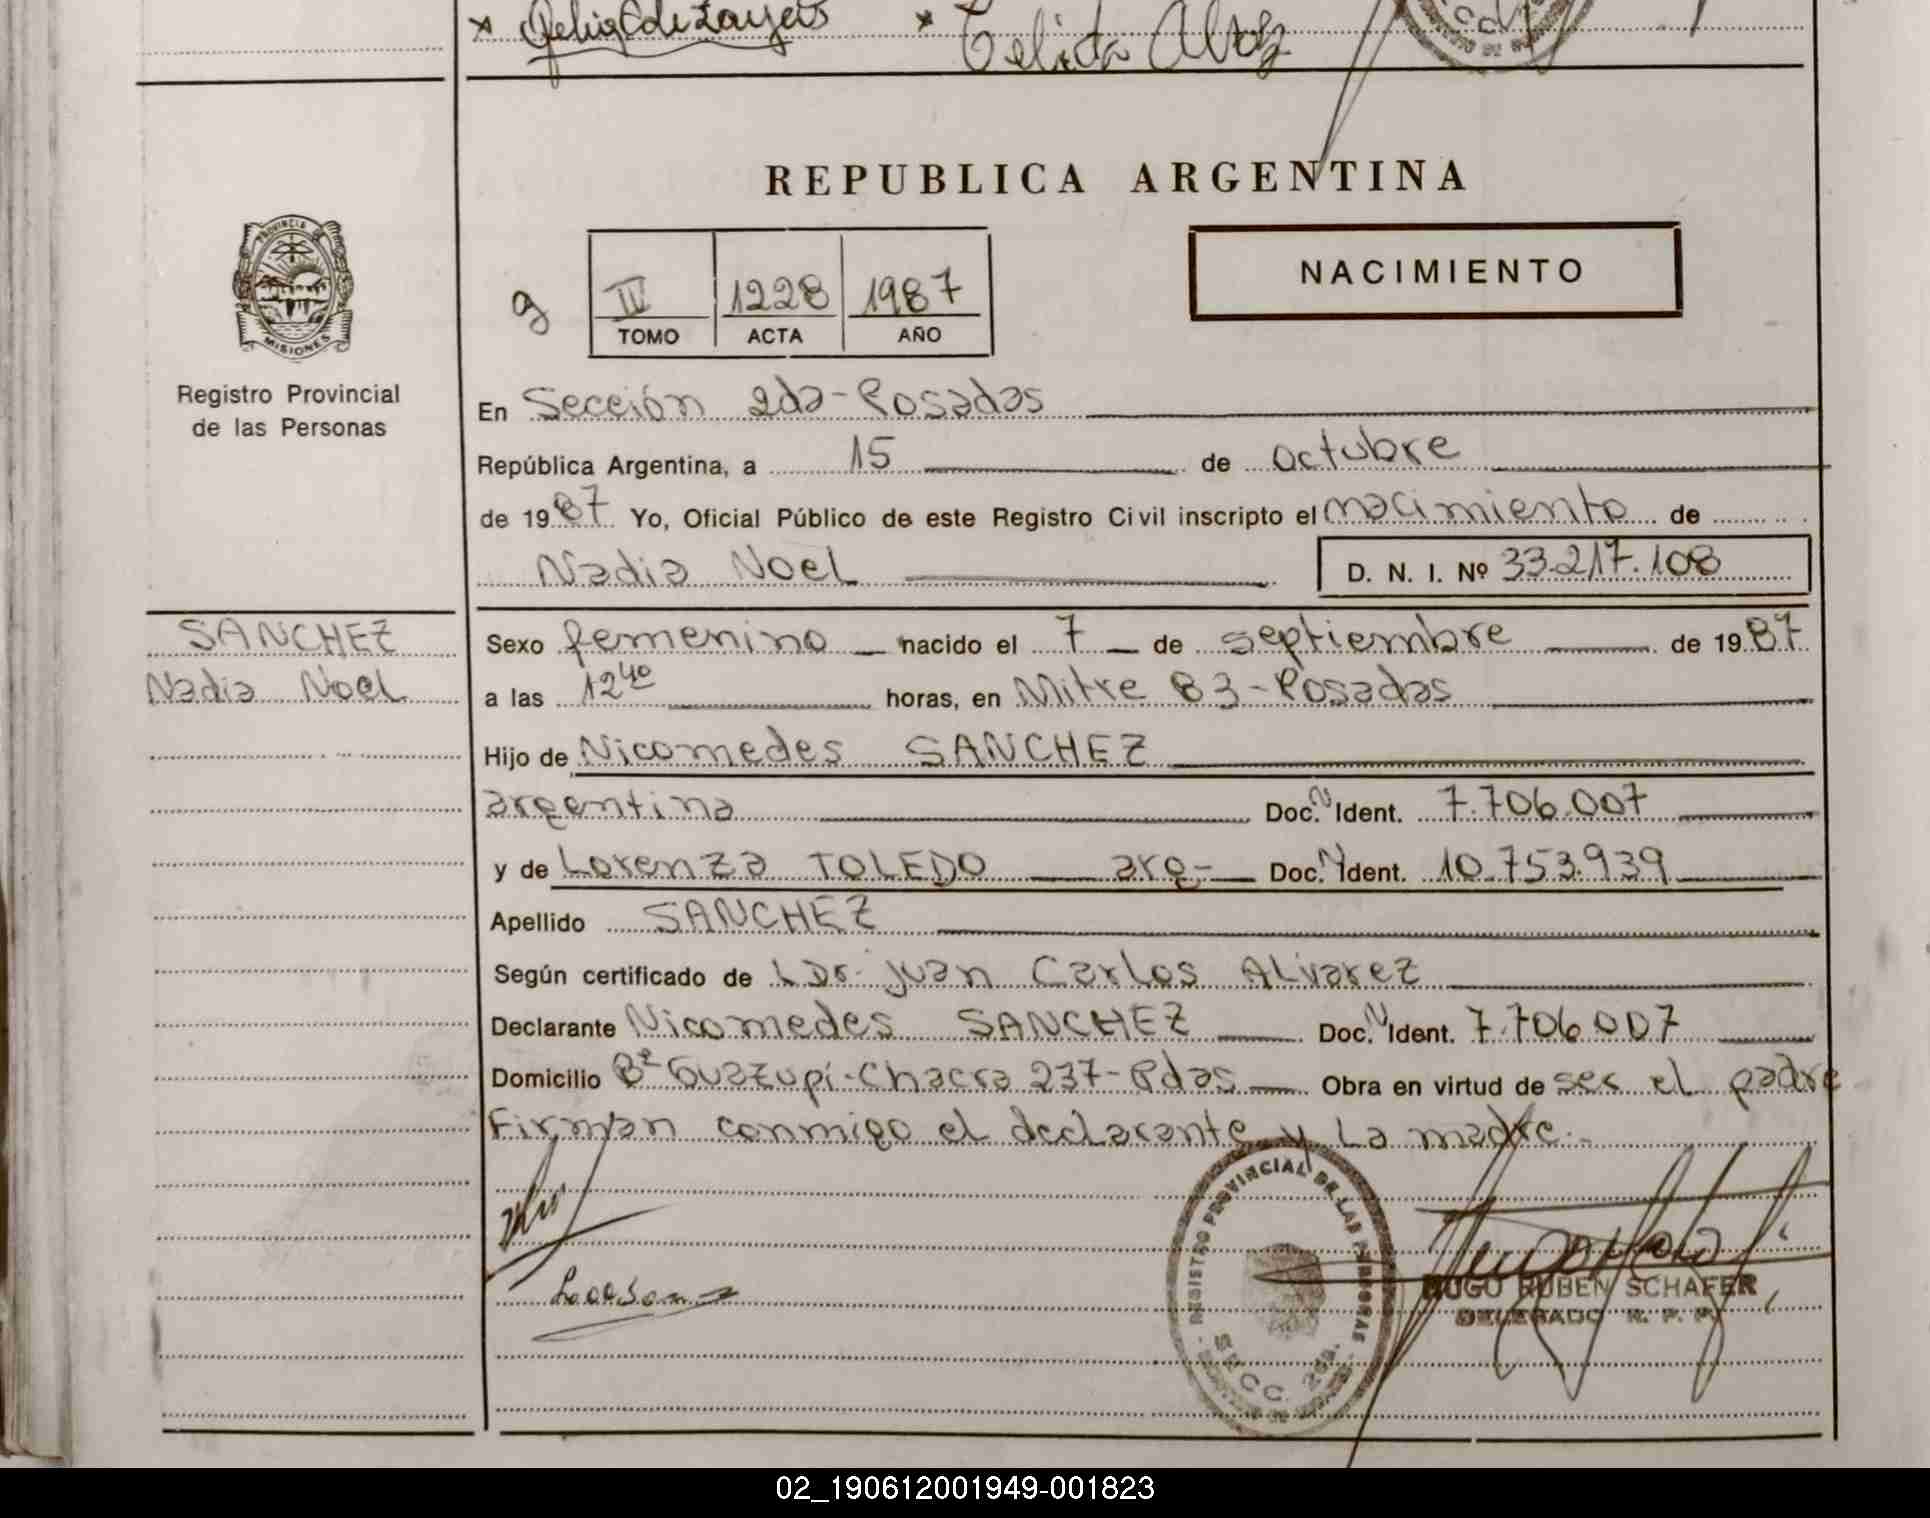 Celida
REPUBLICA ARGENTINA
NACIMIENTO
PROVINCIA DE
MISIONES
Registro Provincial
de las Personas
g IV 1228 1987
TOMO ACTA AÑO
En Sección 2da-Posadas
República Argentina, a 15 de octubre
de 1987 Yo, Oficial Público de este Registro Civil inscripto el nacimiento de
Nadia Noel D. N. I. Nº 33.217.108
SANCHEZ
Nadia Noel
Sexo femenino nacido el 7 de septiembre de 1987
a las 12 40 horas, en Mitre 83-Posadas
Hijo de Nicomedes SANCHEZ
argentina Doc. N Ident. 7.706.007
y de Lorenza TOLEDO arg- Doc. N Ident. 10.753.939
Apellido SANCHEZ
Según certificado de Dr. Juan Carlos Alvarez
Declarante Nicomedes SANCHEZ Doc. N Ident. 7.706.007
Domicilio Bº Guazupi-Chacra 237-Pdas Obra en virtud de ser el padre
Firman conmigo el declarante y La madre.-
REGISTRO PROVINCIAL DE LAS PERSONAS
SECC. 2da.
HUGO RUBEN SCHAFER
DELEGADO R. P. P.
02_190612001949-001823